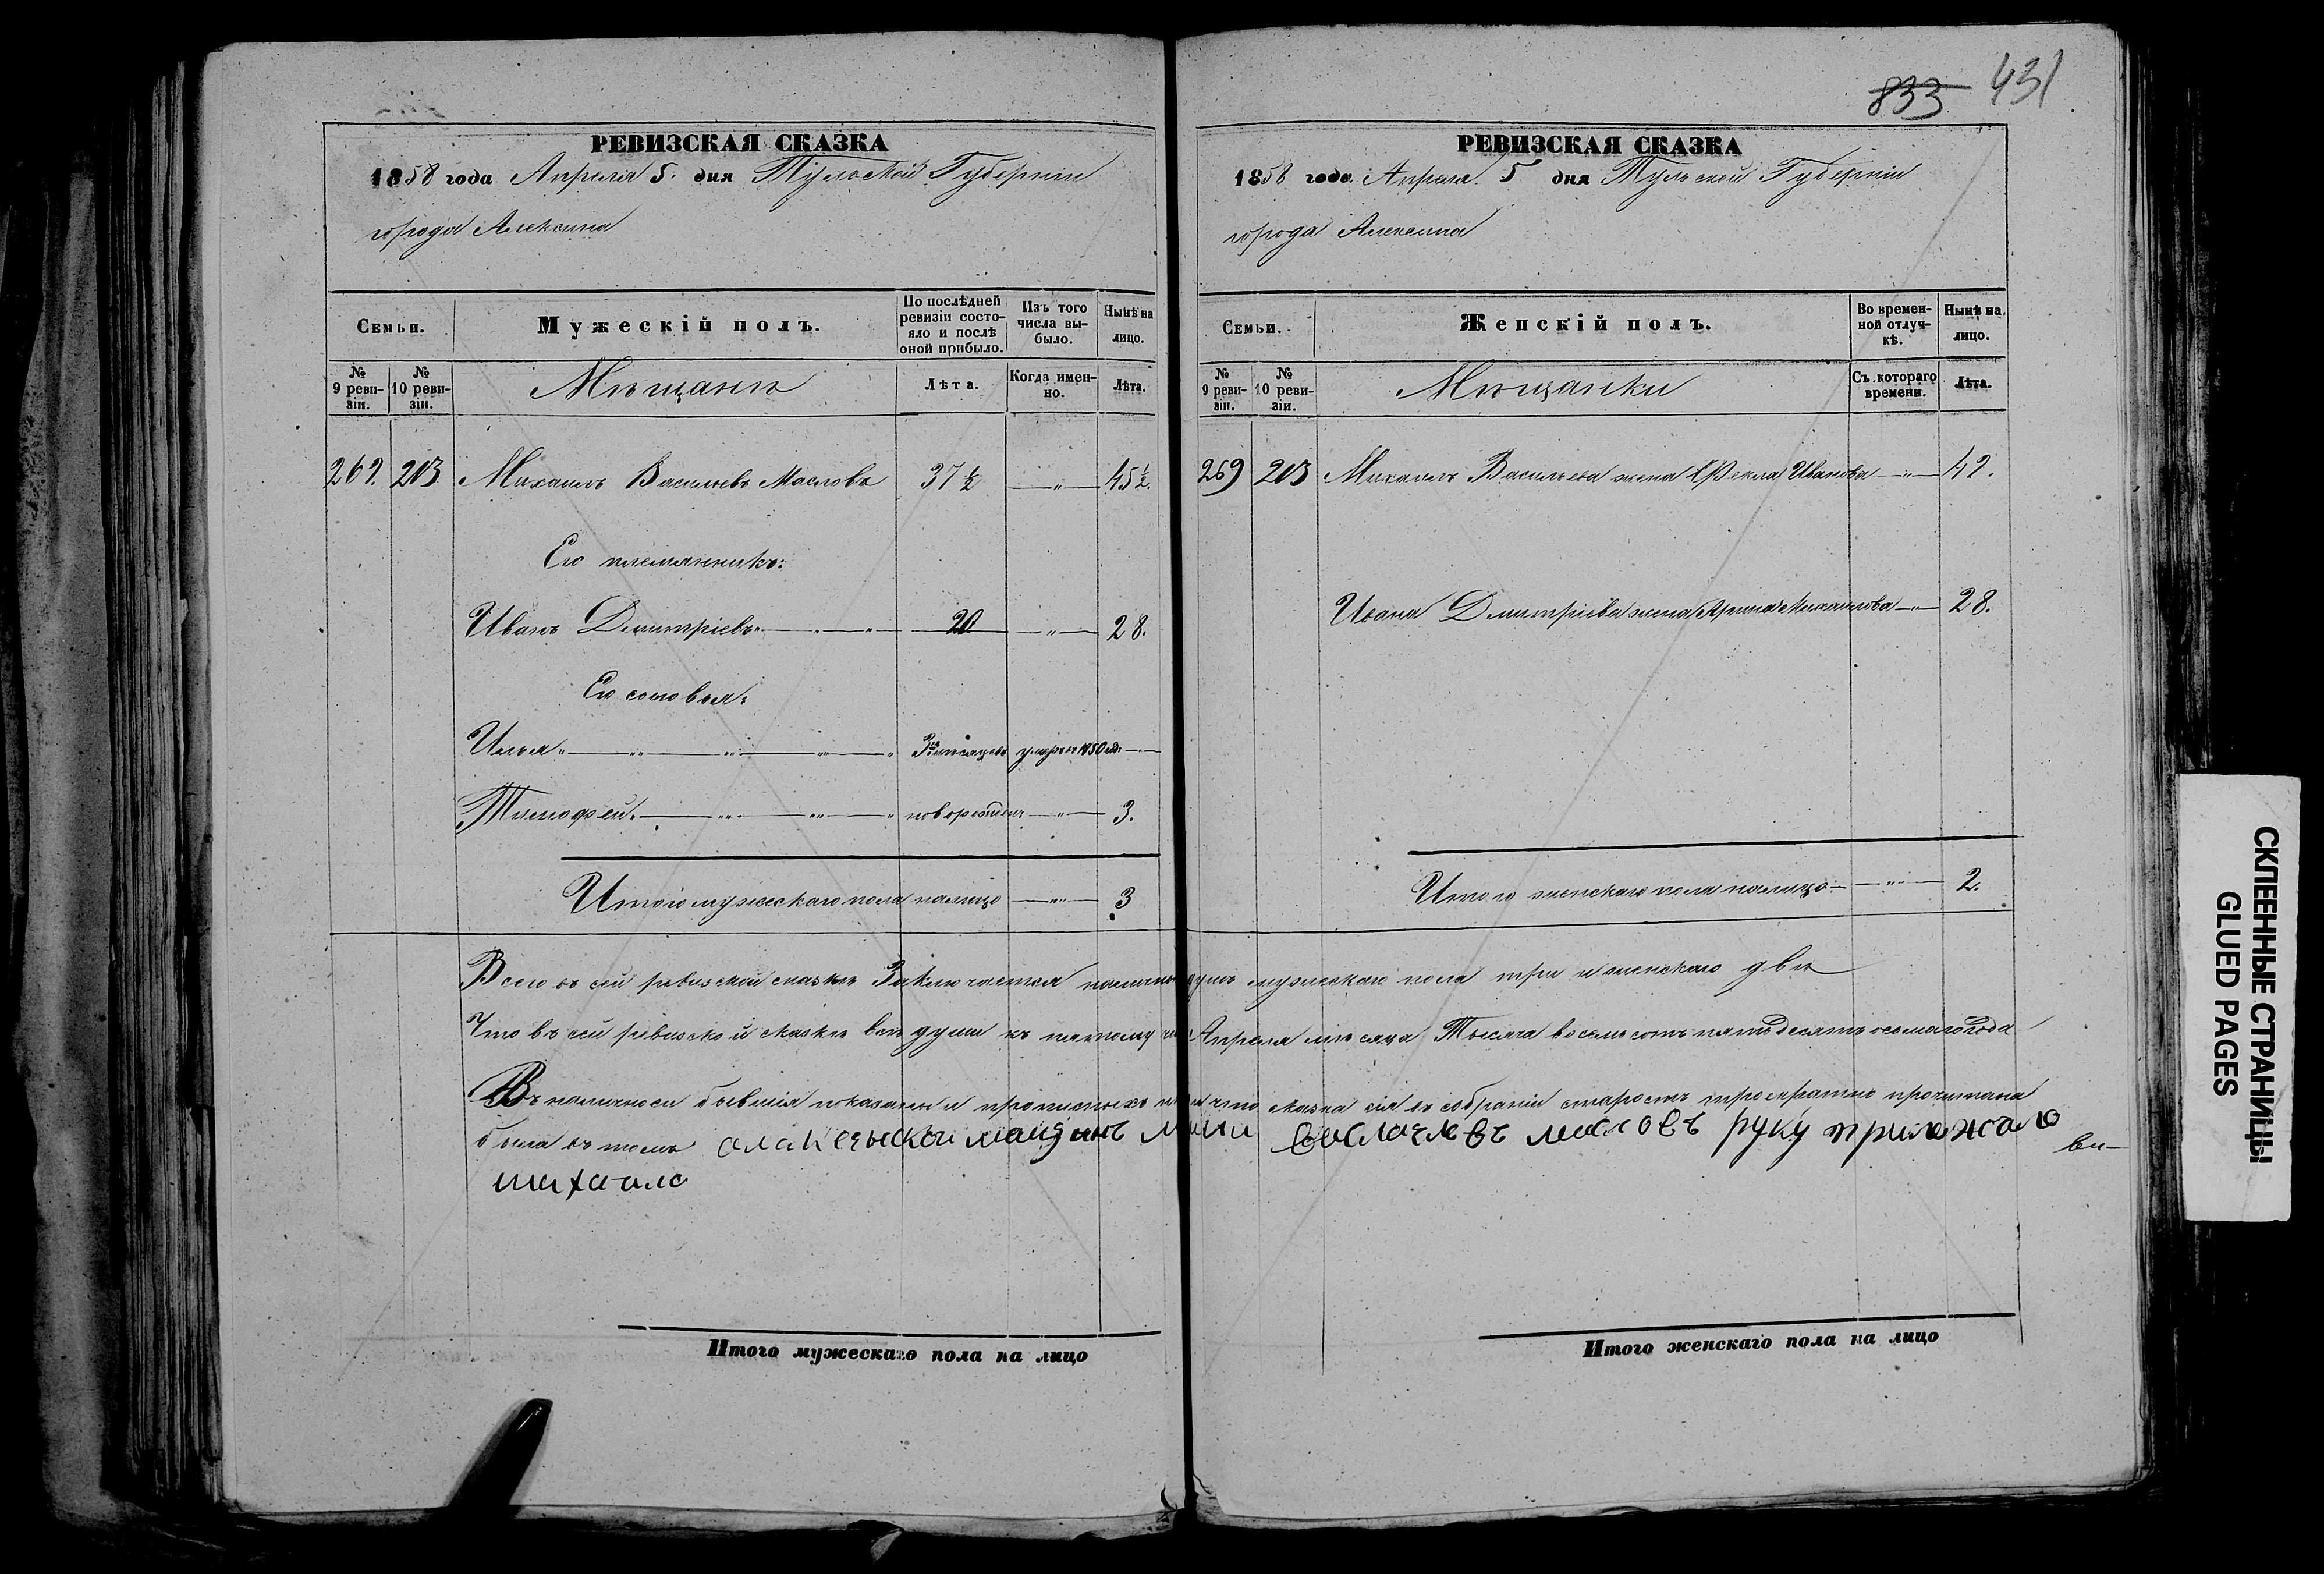 833 431
РЕВИЗСКАЯ СКАЗКА
1858 года Апреля 5. дня Тульской Губерніи
города Алексина
Семьи.
Мужескій полъ.
По послѣдней ревизіи состояло и послѣ оной прибыло.
Изъ того числа выбыло.
Нынѣ на лицо.
№ 9 ревизіи.
№ 10 ревизіи.
Мѣщане
Лѣта.
Когда именно.
Лѣта.
269. 203 Михаилъ Васильевъ Масловъ 37 ½ — „ — 45 ½.
Его племянникъ:
Иванъ Дмитріевъ. 20 — „ — 28.
Его сыновья:
Илья „ мѣсяцевъ умеръ въ 1850 год.
Тимофей. новорожден — „ — 3.
Итого мужескаго пола налицо — „ — 3
РЕВИЗСКАЯ СКАЗКА
1858 года Апреля 5 дня Тульской Губерніи
города Алексина
Семьи.
Женскій полъ.
Во временной отлучкѣ.
Нынѣ на лицо.
№ 9 ревизіи.
№ 10 ревизіи.
Мѣщанки
Съ котораго времени.
Лѣта.
269 203 Михаилъ Васильева жена Фекла Иванова — „ — 42.
Ивана Дмитріева жена Арина Михаилова — „ — 28.
Итого женскаго пола налицо — „ — 2.
Всего въ сей ревизской сказкѣ Заключается налично душъ мужескаго пола три и женскаго двѣ
Что въ сей ревизской сказкѣ всѣ души къ пятому Апреля мѣсяца Тысяча восемь сотъ пятьдесятъ осьмаго года
Въ наличноси бывшія показаны и прописныхъ что сказка сія въ собраніи старостъ троекратно прочитана
была въ томъ маслов руку приложало
михаило
ви-
Итого мужескаго пола на лицо
Итого женскаго пола на лицо
СКЛЕЕННЫЕ СТРАНИЦЫ
GLUED PAGES